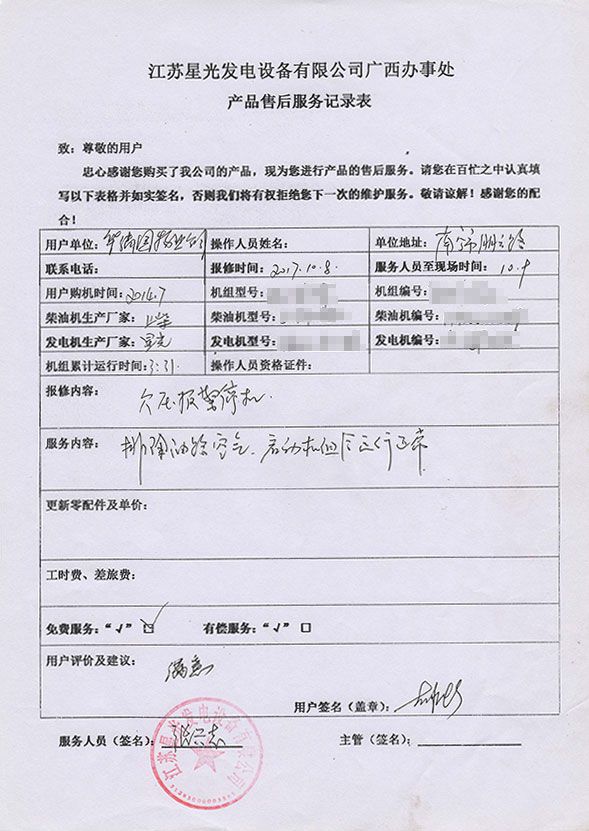 江苏星光发电设备有限公司广西办事处
产品售后服务记录表
致：尊敬的用户
忠心感谢您购买了我公司的产品，现为您进行产品的售后服务。请您在百忙之中认真填
写以下表格并如实签名，否则我们将有权拒绝您下一次的维护服务。敬请谅解！感谢您的配
合！
用户单位： 操作人员姓名： 单位地址：南宁
联系电话： 报修时间：2017.10.8. 服务人员至现场时间：10.9
用户购机时间：2014.7 机组型号： 机组编号：
柴油机生产厂家：上柴 柴油机型号： 柴油机编号：
发电机生产厂家：星光 发电机型号： 发电机编号：
机组累计运行时间：3:31. 操作人员资格证件：
报修内容：
欠压报警停机.
服务内容：
排除油路空气.启动机组运行正常
更新零配件及单价：
工时费、差旅费：
免费服务：“√”☑ 有偿服务：“√”□
用户评价及建议：
满意
用户签名（盖章）：
服务人员（签名）： 主管（签名）：
江苏星光发电设备有限公司